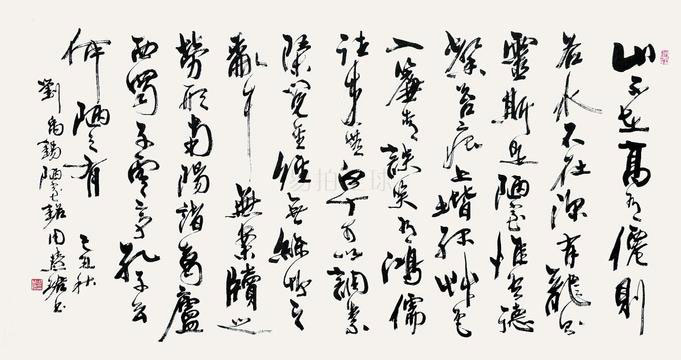 山不在高有僊則
名水不在深有龍則
靈斯是陋室惟吾德
馨苔痕上階緑草色
入簾青談笑有鴻儒
往來無白丁可以調素
琴閱金經無絲竹之
亂耳無案牘之
勞形南陽諸葛廬
西蜀子雲亭孔子云
何陋之有 己丑秋
劉禹錫陋室銘周慧珺書